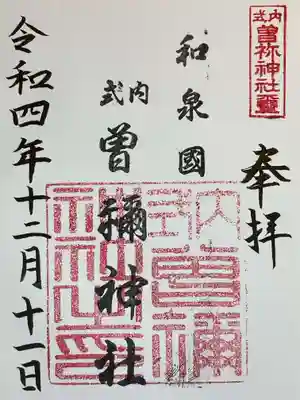 式内
曽祢神社璽
奉拝
和泉國
式内
曽禰神社
令和四年十二月十一日